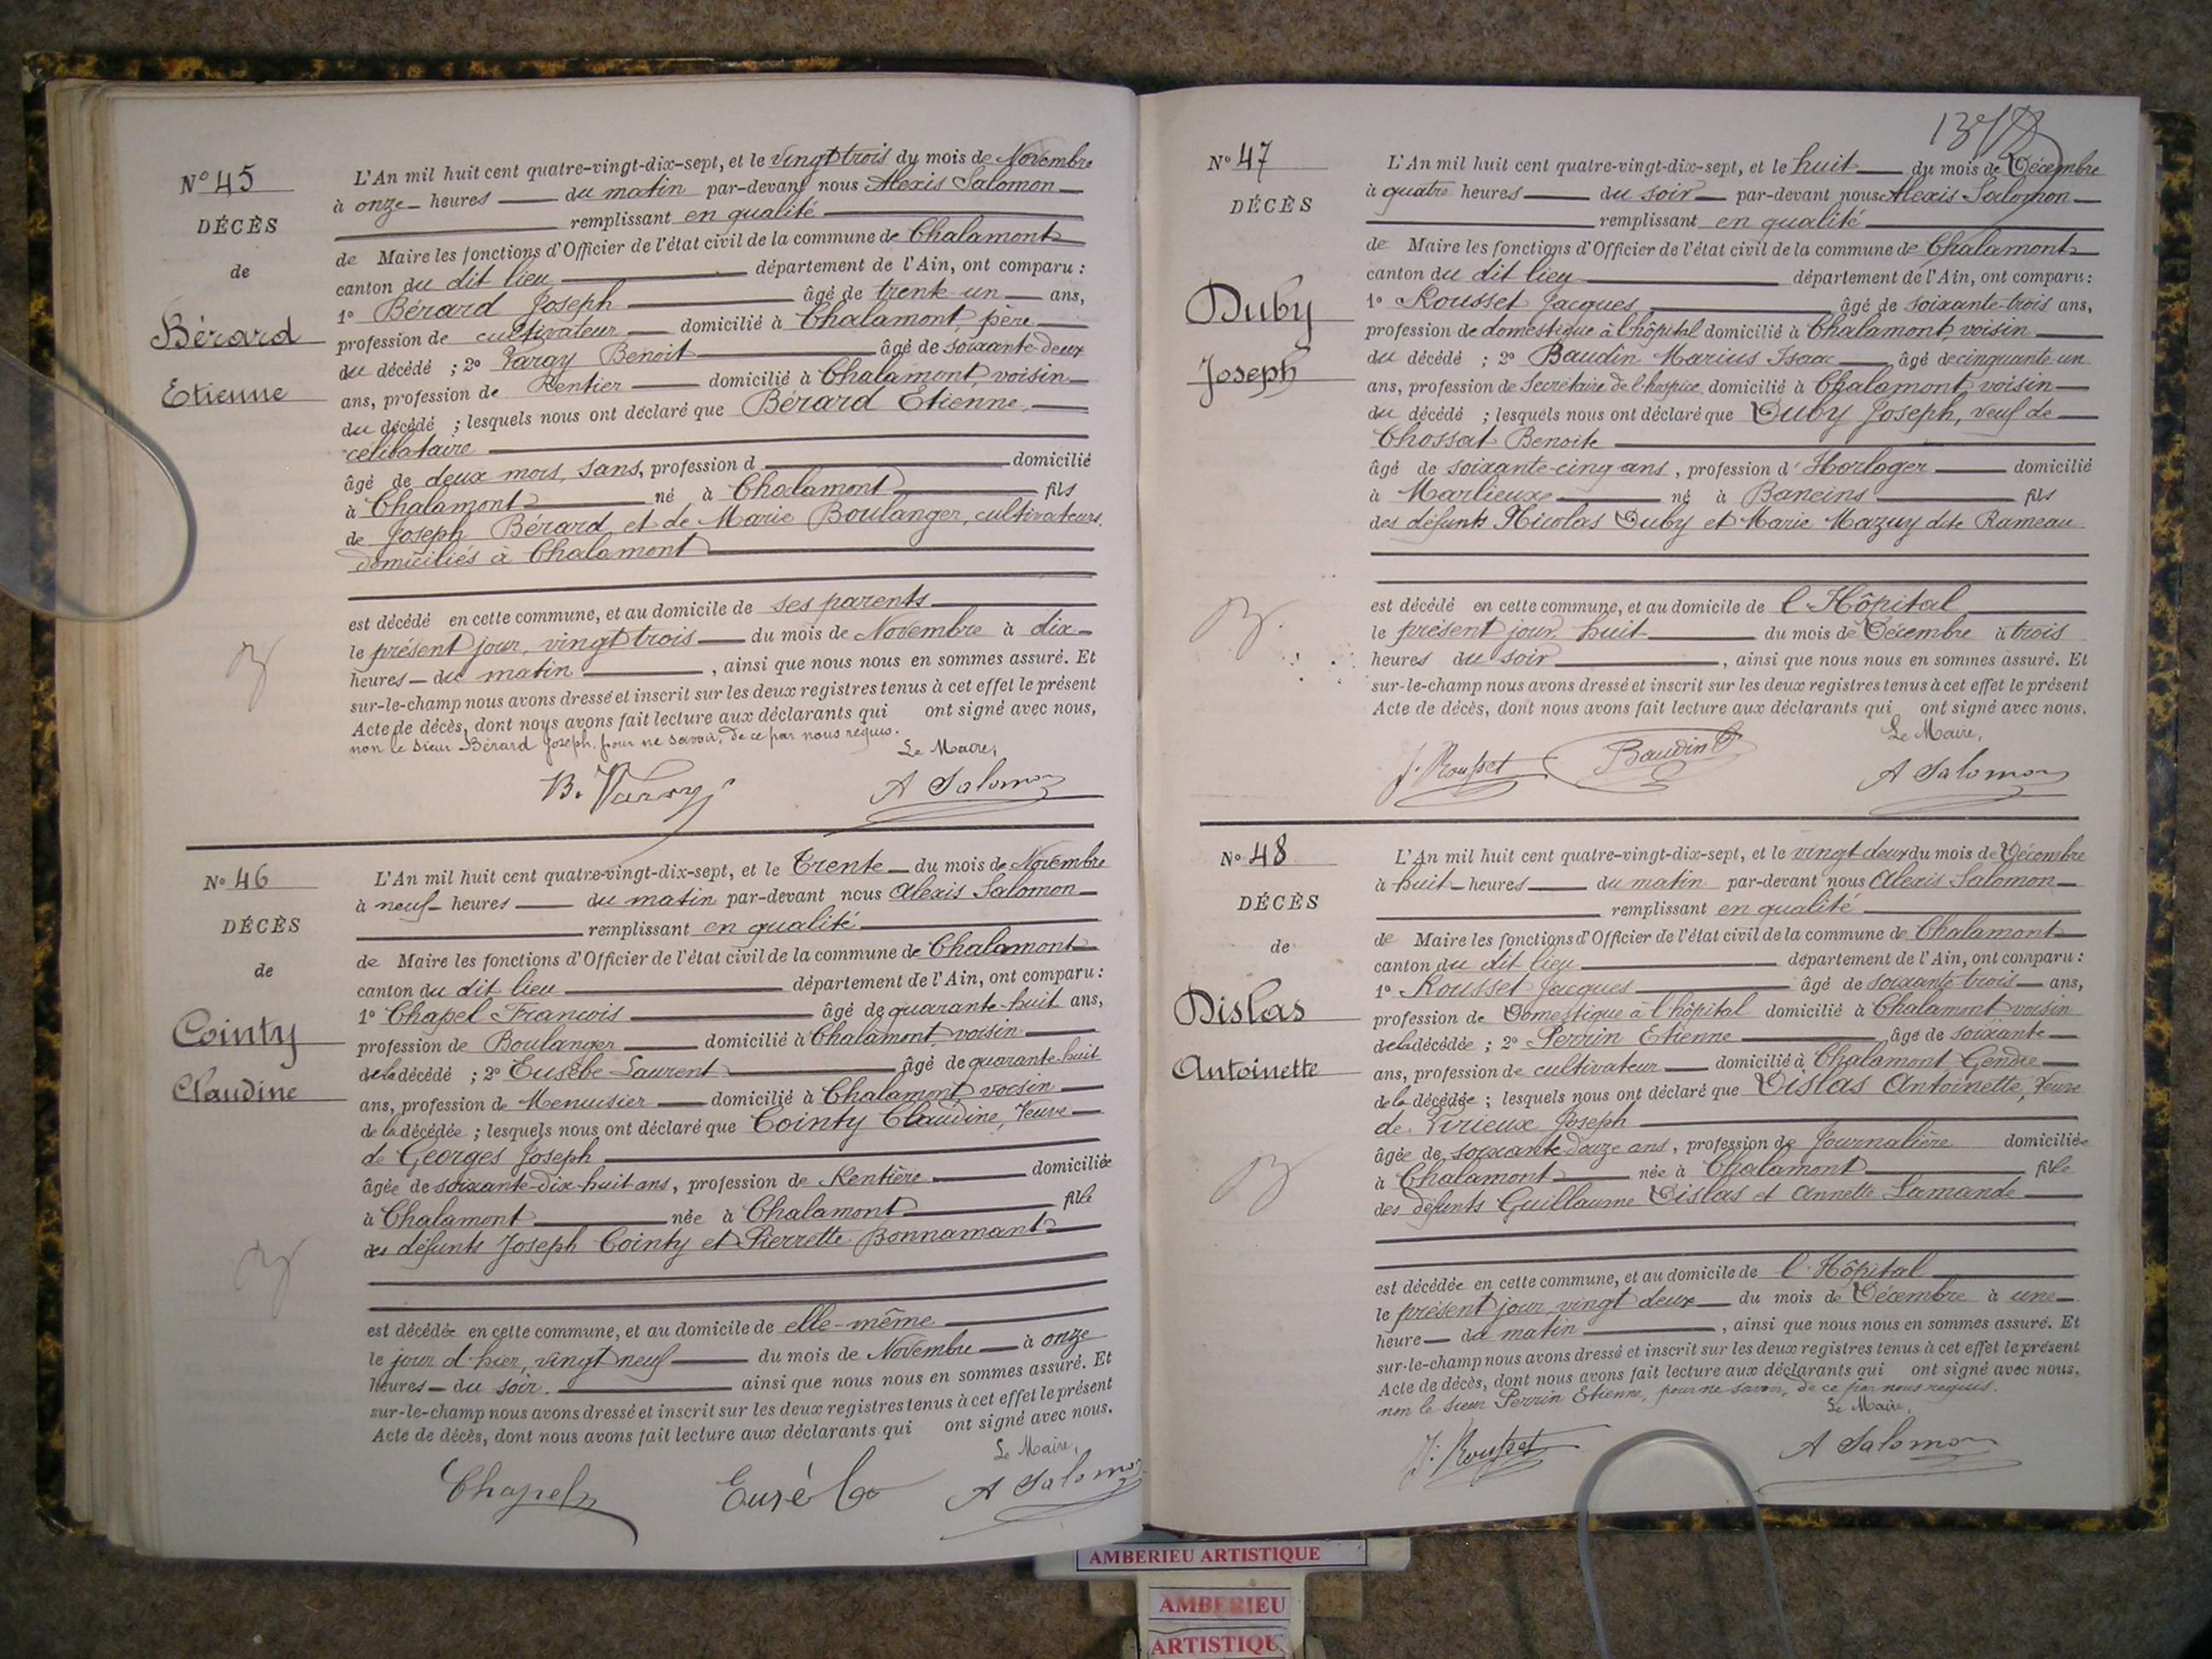 N° 45
DÉCÈS
de
Bérard
Etienne
L'An mil huit cent quatre-vingt-dix-sept, et le vingt trois du mois de Novembre
à onze heures du matin par-devant nous Alexis Salomon
remplissant en qualité
de Maire les fonctions d'Officier de l'état civil de la commune de Chalamont
canton du dit lieu département de l'Ain, ont comparu :
1° Bérard Joseph âgé de trente un ans,
profession de cultivateur domicilié à Chalamont, père
du décédé ; 2° Varay Benoit âgé de soixante deux
ans, profession de Rentier domicilié à Chalamont, voisin
du décédé ; lesquels nous ont déclaré que Bérard Etienne,
célibataire
âgé de deux mois, sans, profession d domicilié
à Chalamont né à Chalamont fils
de Joseph Bérard et de Marie Boulanger, cultivateurs,
domiciliés à Chalamont
est décédé en cette commune, et au domicile de ses parents
le présent jour, vingt trois du mois de Novembre à dix
heures du matin , ainsi que nous nous en sommes assuré. Et
sur-le-champ nous avons dressé et inscrit sur les deux registres tenus à cet effet le présent
Acte de décès, dont nous avons fait lecture aux déclarants qui ont signé avec nous,
non le sieur Bérard Joseph, pour ne savoir, de ce par nous requis.
Le Maire,
B. Varay
A Salomon
N° 46
DÉCÈS
de
Cointy
Claudine
L'An mil huit cent quatre-vingt-dix-sept, et le Trente du mois de Novembre
à neuf heures du matin par-devant nous Alexis Salomon
remplissant en qualité
de Maire les fonctions d'Officier de l'état civil de la commune de Chalamont
canton du dit lieu département de l'Ain, ont comparu :
1° Chapel François âgé de quarante-huit ans,
profession de Boulanger domicilié à Chalamont, voisin
de la décédé ; 2° Eusèbe Laurent âgé de quarante-huit
ans, profession de Menuisier domicilié à Chalamont, voisin
de la décédée ; lesquels nous ont déclaré que Cointy Claudine, Veuve
de Georges Joseph
âgée de soixante-dix-huit ans, profession de Rentière domiciliée
à Chalamont née à Chalamont fille
des défunts Joseph Cointy et Pierrette Bonnamant
est décédée en cette commune, et au domicile de elle-même
le jour d'hier, vingt neuf du mois de Novembre à onze
heures du soir. ainsi que nous nous en sommes assuré. Et
sur-le-champ nous avons dressé et inscrit sur les deux registres tenus à cet effet le présent
Acte de décès, dont nous avons fait lecture aux déclarants qui ont signé avec nous.
Le Maire,
Chapel
Eusèbe
A Salomon
N° 47
DÉCÈS
Duby
Joseph
L'An mil huit cent quatre-vingt-dix-sept, et le huit du mois de Décembre
à quatre heures du soir par-devant nous Alexis Salomon
remplissant en qualité
de Maire les fonctions d'Officier de l'état civil de la commune de Chalamont
canton du dit lieu département de l'Ain, ont comparu:
1° Rousset Jacques, âgé de soixante-trois ans,
profession de domestique à l'hôpital domicilié à Chalamont, voisin
du décédé ; 2° Baudin Marius Isaac âgé de cinquante un
ans, profession de Secrétaire de l'hospice, domicilié à Chalamont, voisin
du décédé ; lesquels nous ont déclaré que Duby Joseph, veuf de
Chossat Benoite
âgé de soixante-cinq ans, profession d'Horloger domicilié
à Marlieux né à Baneins fils
des défunts Nicolas Duby et Marie Mazuy dite Rameau
est décédé en cette commune, et au domicile de l'Hôpital
le présent jour, huit du mois de Décembre à trois
heures du soir , ainsi que nous nous en sommes assuré. Et
sur-le-champ nous avons dressé et inscrit sur les deux registres tenus à cet effet le présent
Acte de décès, dont nous avons fait lecture aux déclarants qui ont signé avec nous.
Le Maire,
J. Rousset
Baudin
A Salomon
N° 48
DÉCÈS
de
Dislas
Antoinette
L'An mil huit cent quatre-vingt-dix-sept, et le vingt deux du mois de Décembre
à huit heures du matin par-devant nous Alexis Salomon
remplissant en qualité
de Maire les fonctions d'Officier de l'état civil de la commune de Chalamont
canton du dit lieu département de l'Ain, ont comparu :
1° Rousset Jacques âgé de soixante trois ans,
profession de Domestique à l'hôpital domicilié à Chalamont voisin
de la décédée ; 2° Perrin Etienne âgé de soixante
ans, profession de cultivateur domicilié à Chalamont Gendre
de la décédée ; lesquels nous ont déclaré que Dislas Antoinette, Veuve
de Virieux Joseph
âgée de soixante douze ans, profession de Journalière domiciliée
à Chalamont née à Chalamont fille
des défunts Guillaume Dislas et Annette Lamande
est décédée en cette commune, et au domicile de l'Hôpital
le présent jour, vingt deux du mois de Décembre à une
heure du matin , ainsi que nous nous en sommes assuré. Et
sur-le-champ nous avons dressé et inscrit sur les deux registres tenus à cet effet le présent
Acte de décès, dont nous avons fait lecture aux déclarants qui ont signé avec nous.
non le sieur Perrin Etienne, pour ne savoir, de ce par nous requis.
Le Maire,
J. Rousset
A Salomon
AMBERIEU ARTISTIQUE
AMBERIEU
ARTISTIQU